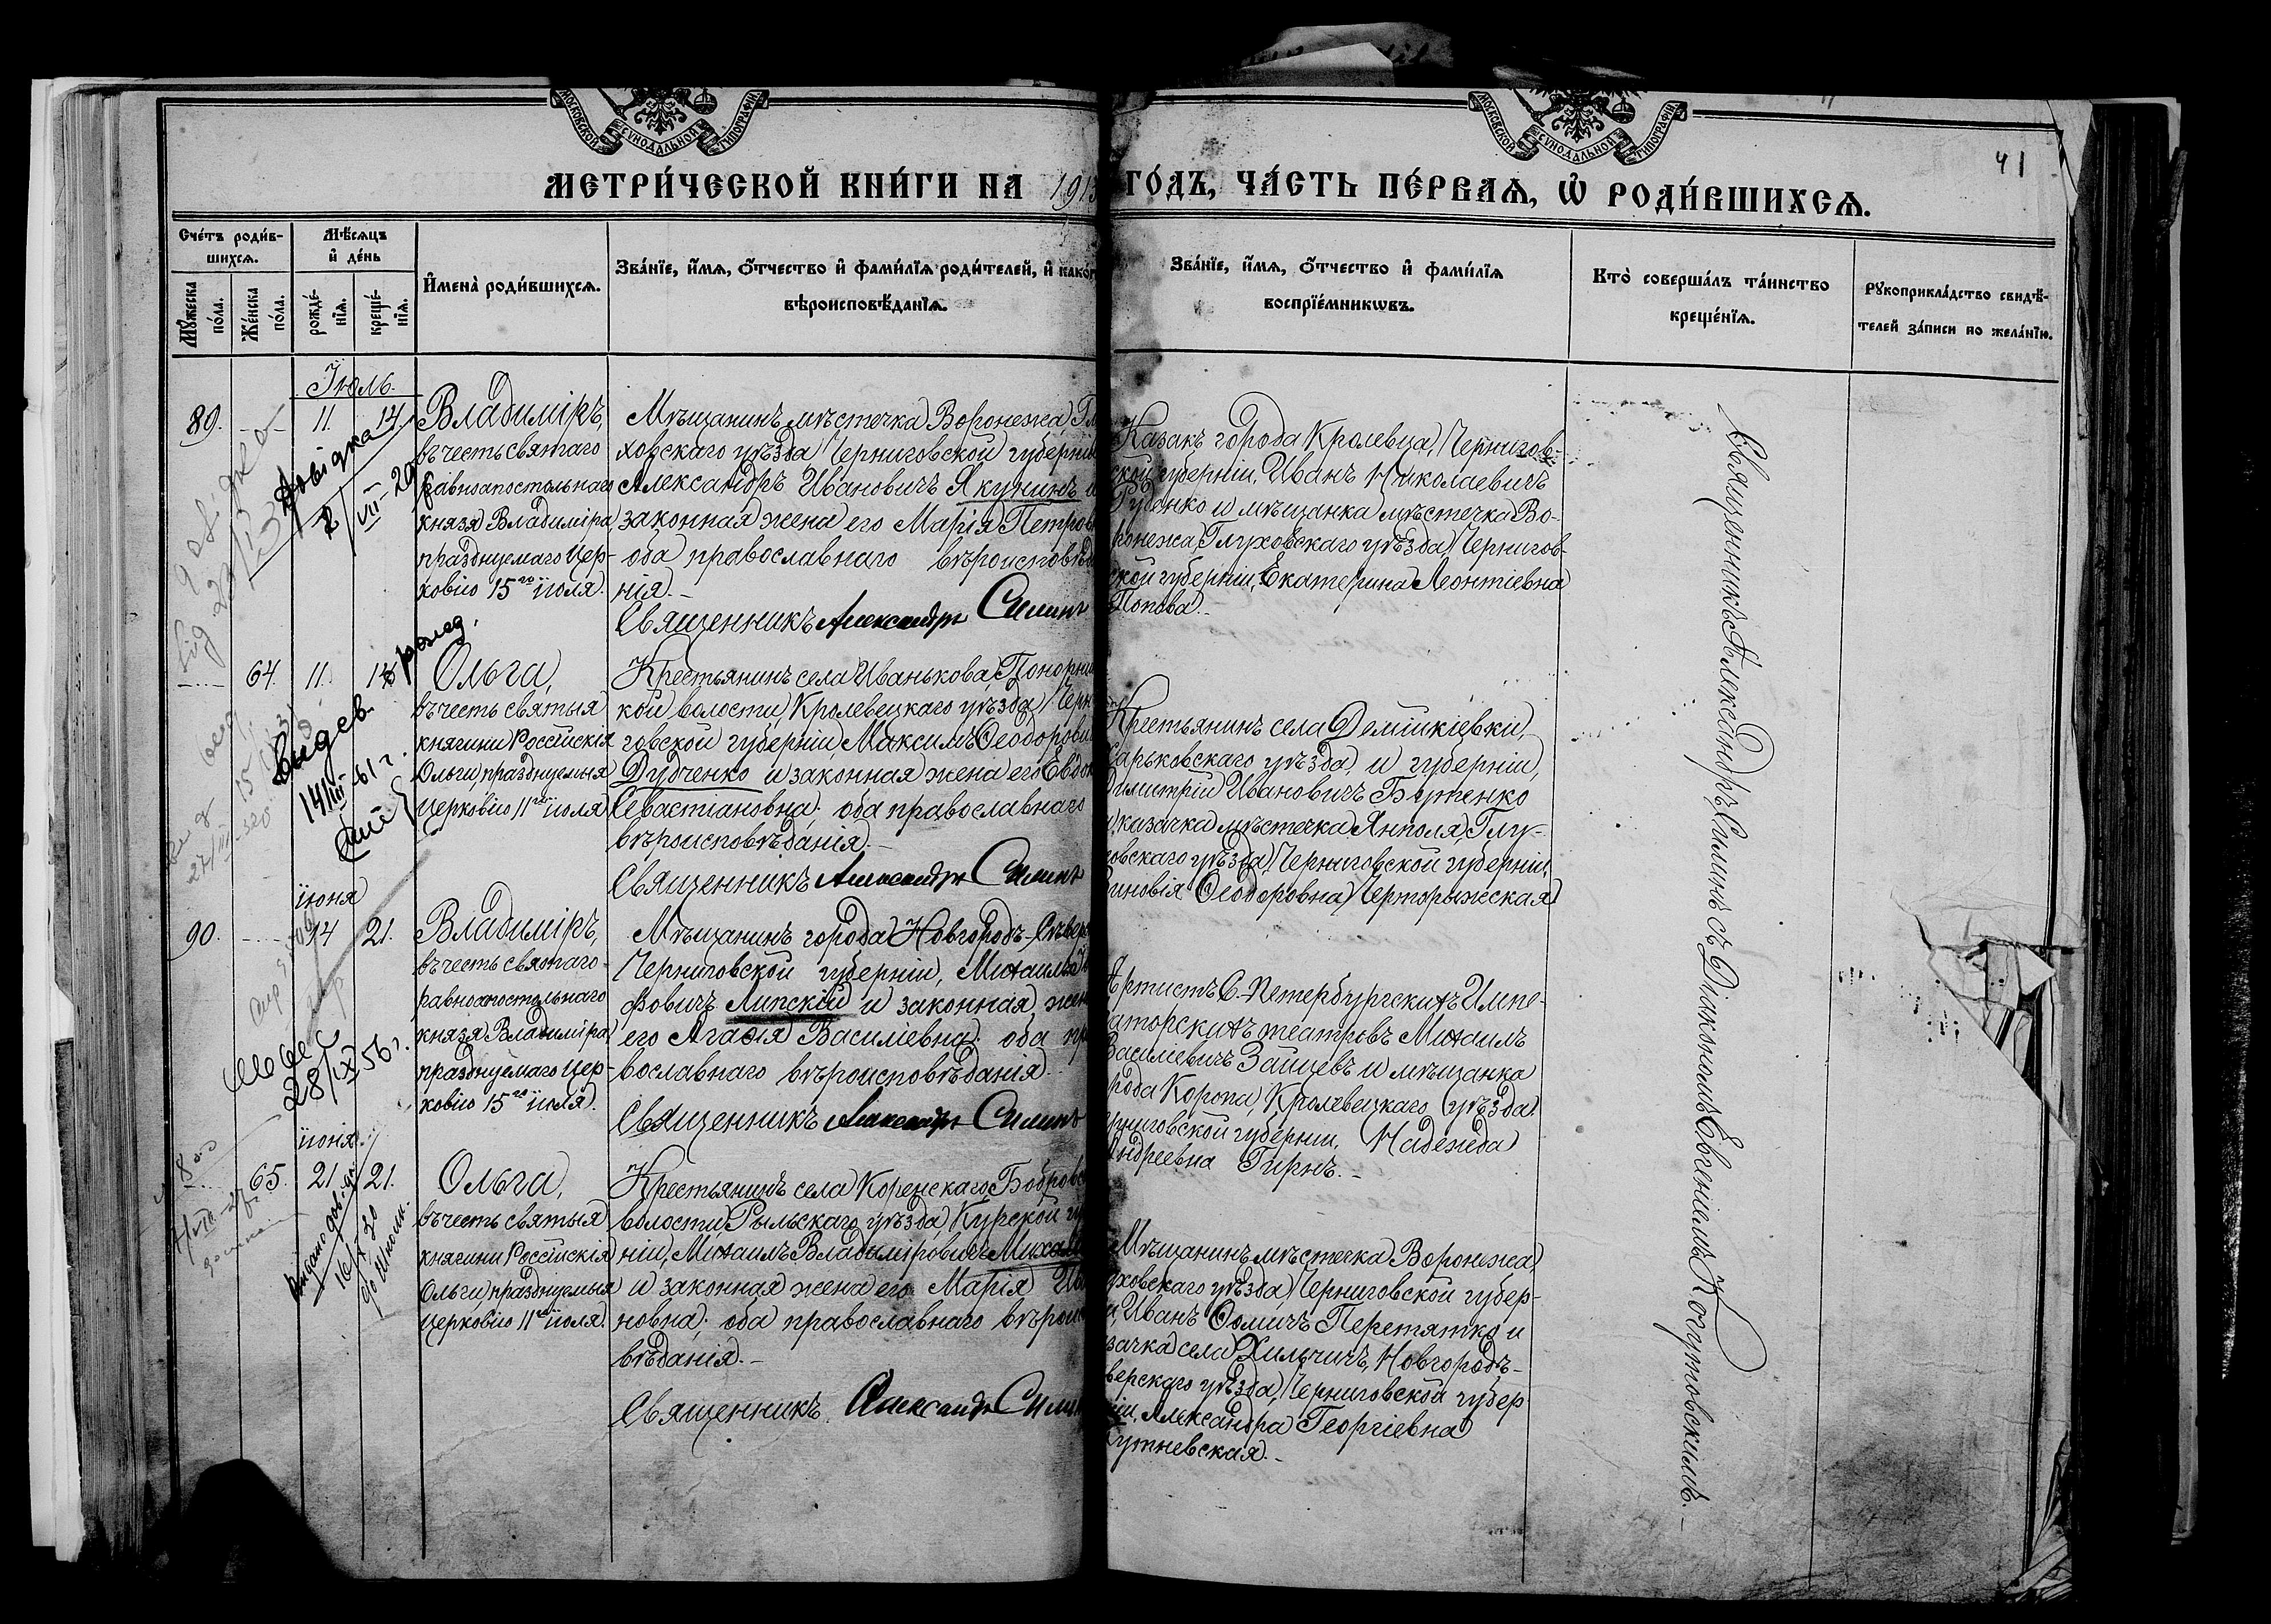 МОСКОВСКОЙ СѴНОДАЛЬНОЙ ТИПОГРАФІИ
МОСКОВСКОЙ СѴНОДАЛЬНОЙ ТИПОГРАФІИ
41
МЕТРИ́ЧЕСКОЙ КНИ́ГИ НА 1913 ГО́ДЪ, ЧА́СТЬ ПЕ́РВАѦ, Ѡ҆ РОДИ́ВШИХСѦ.
Сче́тъ роди́в-
шихсѧ.
Мꙋ́жеска
по́ла.
Же́нска
по́ла.
Мѣ́сѧцъ
и҆ де́нь
рожде́-
нїѧ.
креще́-
нїѧ.
И҆мена̀ роди́вшихсѧ.
Зва́нїе, и҆́мѧ, ѻ҆́тчество и҆ фами́лїѧ роди́телей, и҆ како́г
вѣроисповѣ́данїѧ.
Зва́нїе, и҆́мѧ, ѻ҆́тчество и҆ фами́лїѧ
воспрїе́мникѡвъ.
Кто̀ соверша́лъ та́инство
креще́нїѧ.
Рꙋкоприкла́дство свидѣ́-
телей за́писи по жела́нїю.
Іюль.
89.
11. 14.
Владиміръ,
въ честь святаго
равноапостольнаго
князя Владиміра,
празднуемаго Цер-
ковію 15го іюля.
Мѣщанинъ мѣстечка Воронежа, Глу
ховскаго уѣзда, Черниговской губерніи
Александръ Ивановичъ Якунинъ и
законная жена его Марія Петров
оба православнаго вѣроисповѣда
нія.-
Священникъ Александръ Силинъ
Казакъ города Кролевца, Чернигов-
ской губерніи, Иванъ Николаевичъ
Руденко и мѣщанка мѣстечка Во-
ронежа, Глуховскаго уѣзда, Чернигов-
ской губерніи, Екатерина Леонтіевна
Попова.-
довідка
VII 29
64. 11. 14
Ольга,
въ честь святыя
княгини Россійскія
Ольги, празднуемыя
Церковію 11го іюля.
Крестьянинъ села Иванькова, Понорни
кой волости, Кролевецкаго уѣзда, Черн
говской губерніи, Максимъ Ѳеодорови
Дудченко и законная жена его Евдок
Севастіановна; оба православнаго
вѣроисповѣданія.-
Священникъ Александръ Силинъ
Крестьянинъ села Демишкіевки,
Харьковскаго уѣзда, и губерніи,
Димитрій Ивановичъ Бутенко
и казачка мѣстечка Янполя, Глу-
ховскаго уѣзда, Черниговской губерніи,
Зиновія Ѳеодоровна Черторыжская
14/III-61 г.
іюня
90. 14 21.
Владиміръ,
въ честь святаго
равноапостольнаго
князя Владиміра,
празднуемаго Цер-
ковію 15го іюля.
Мѣщанинъ города Новгородъ-Сѣвер
Черниговской губерніи, Михаилъ
фовичъ Липскій и законная жен
его Агафія Василіевна; оба пр
вославнаго вѣроисповѣданія.-
Священникъ Александръ Силинъ
Артистъ С.-Петербургскихъ Импе-
раторскихъ театровъ Михаилъ
Василіевичъ Зайцевъ и мѣщанка
рода Коропа, Кролевецкаго уѣзда
рниговской губерніи, Надежда
Андреевна Гирнъ.-
28/IX 56 г.
іюня
65. 21 21.
Ольга,
въ честь святыя
княгини Россійскія
Ольги, празднуемыя
Церковію 11го іюля.
Крестьянинъ села Коренскаго, Бобров
волости, Рыльскаго уѣзда, Курской гу
ніи, Михаилъ Владиміровичъ Михай
и законная жена его Марія Ив
новна; оба православнаго вѣроис
вѣданія.-
Священникъ Александръ Силинъ
Мѣщанинъ мѣстечка Воронежа,
уховскаго уѣзда, Черниговской губер-
и, Иванъ Ѳомичъ Перетятко и
зачка села Хильчичъ, Новгородъ-
верскаго уѣзда, Черниговской губер
ніи, Александра Георгіевна
утневская.-
Видано
16/X 30
Священникъ Александръ Силинъ съ Діакономъ Евгеніемъ Когутовскимъ.-